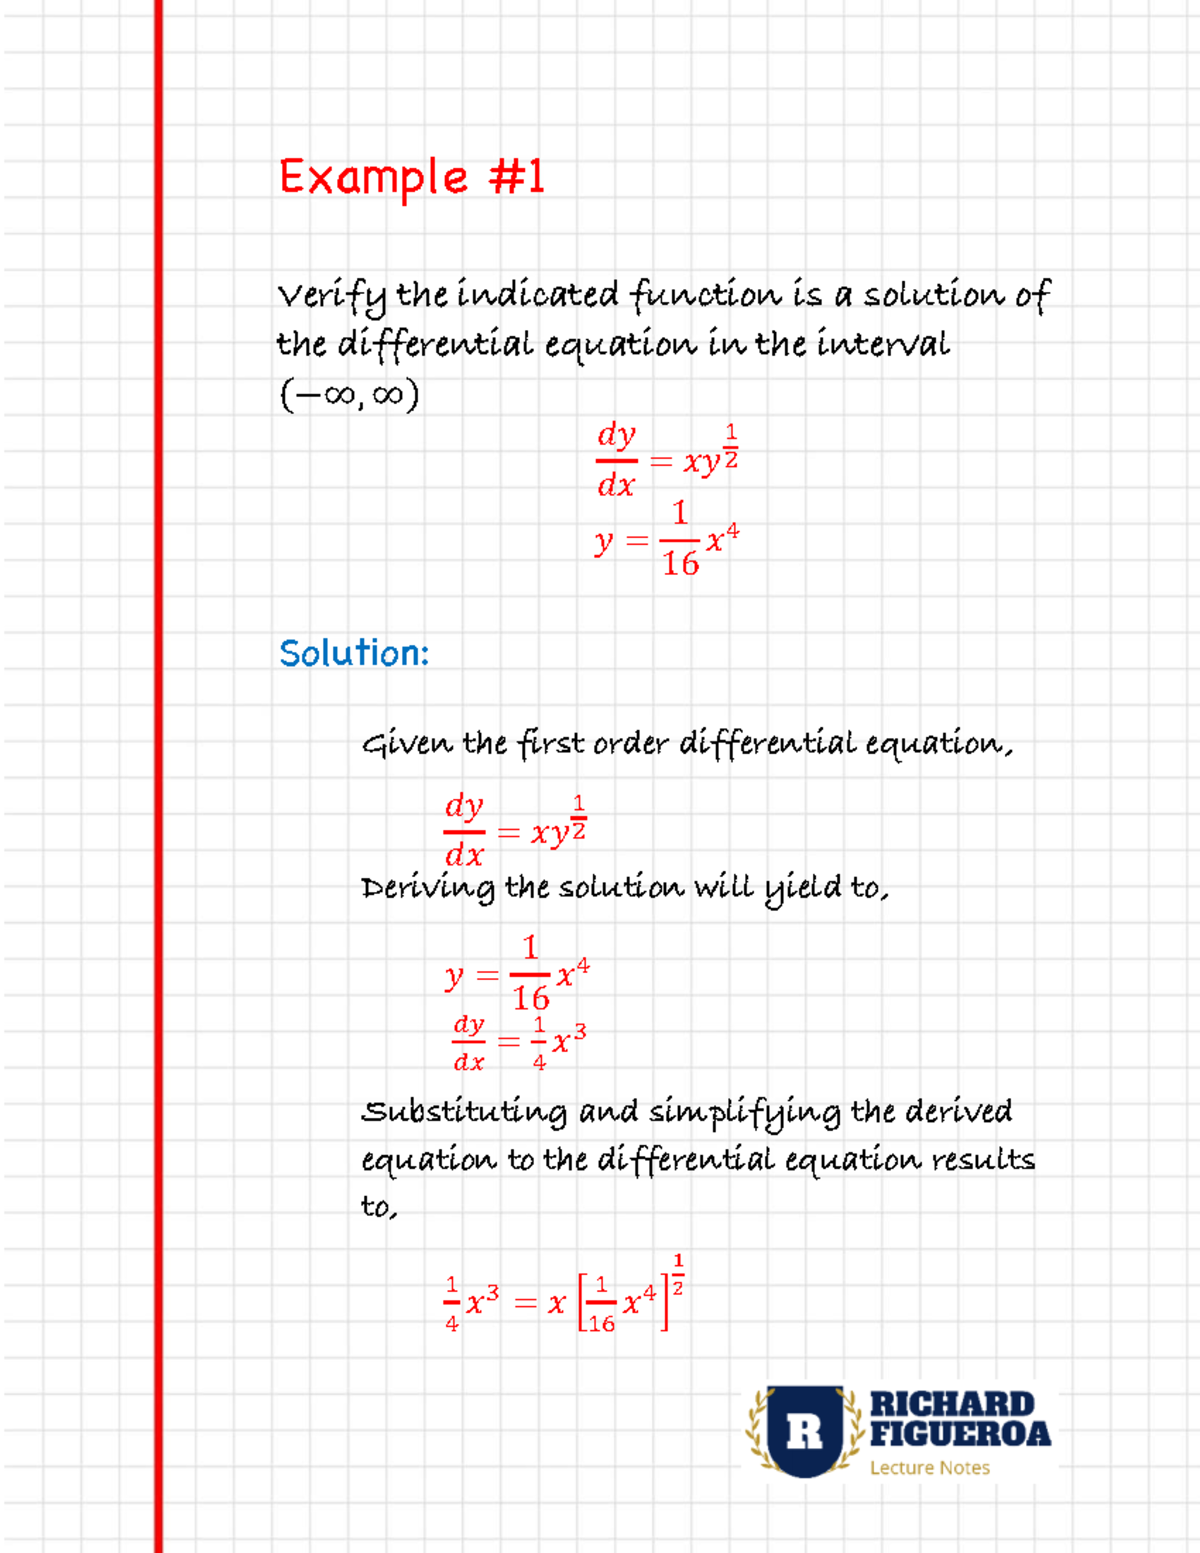 Example #1
Verify the indicated function is a solution of
the differential equation in the interval
(−∞, ∞)
dy/dx = xy^(1/2)
y = 1/16 x^4
Solution:
Given the first order differential equation,
dy/dx = xy^(1/2)
Deriving the solution will yield to,
y = 1/16 x^4
dy/dx = 1/4 x^3
Substituting and simplifying the derived
equation to the differential equation results
to,
1/4 x^3 = x [1/16 x^4]^(1/2)
R
RICHARD
FIGUEROA
Lecture Notes